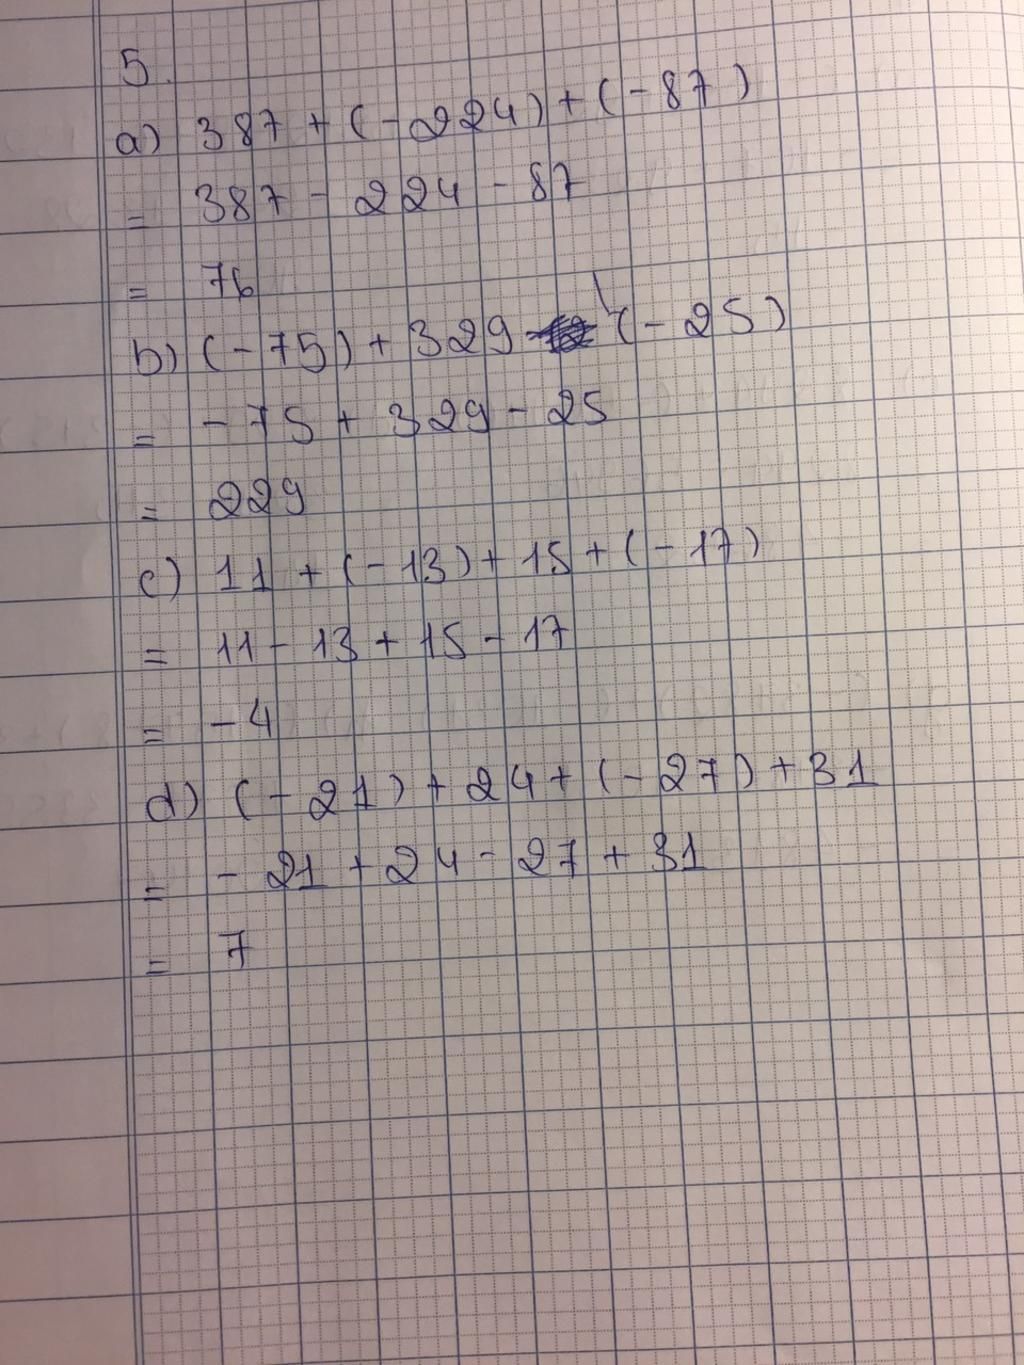 5.
a) 387 + (-224) + (-87)
= 387 - 224 - 87
= 76
b) (-75) + 329 (-25)
= -75 + 329 - 25
= 229
c) 11 + (-13) + 15 + (-17)
= 11 - 13 + 15 - 17
= -4
d) (-21) + 24 + (-27) + 31
= -21 + 24 - 27 + 31
= 7